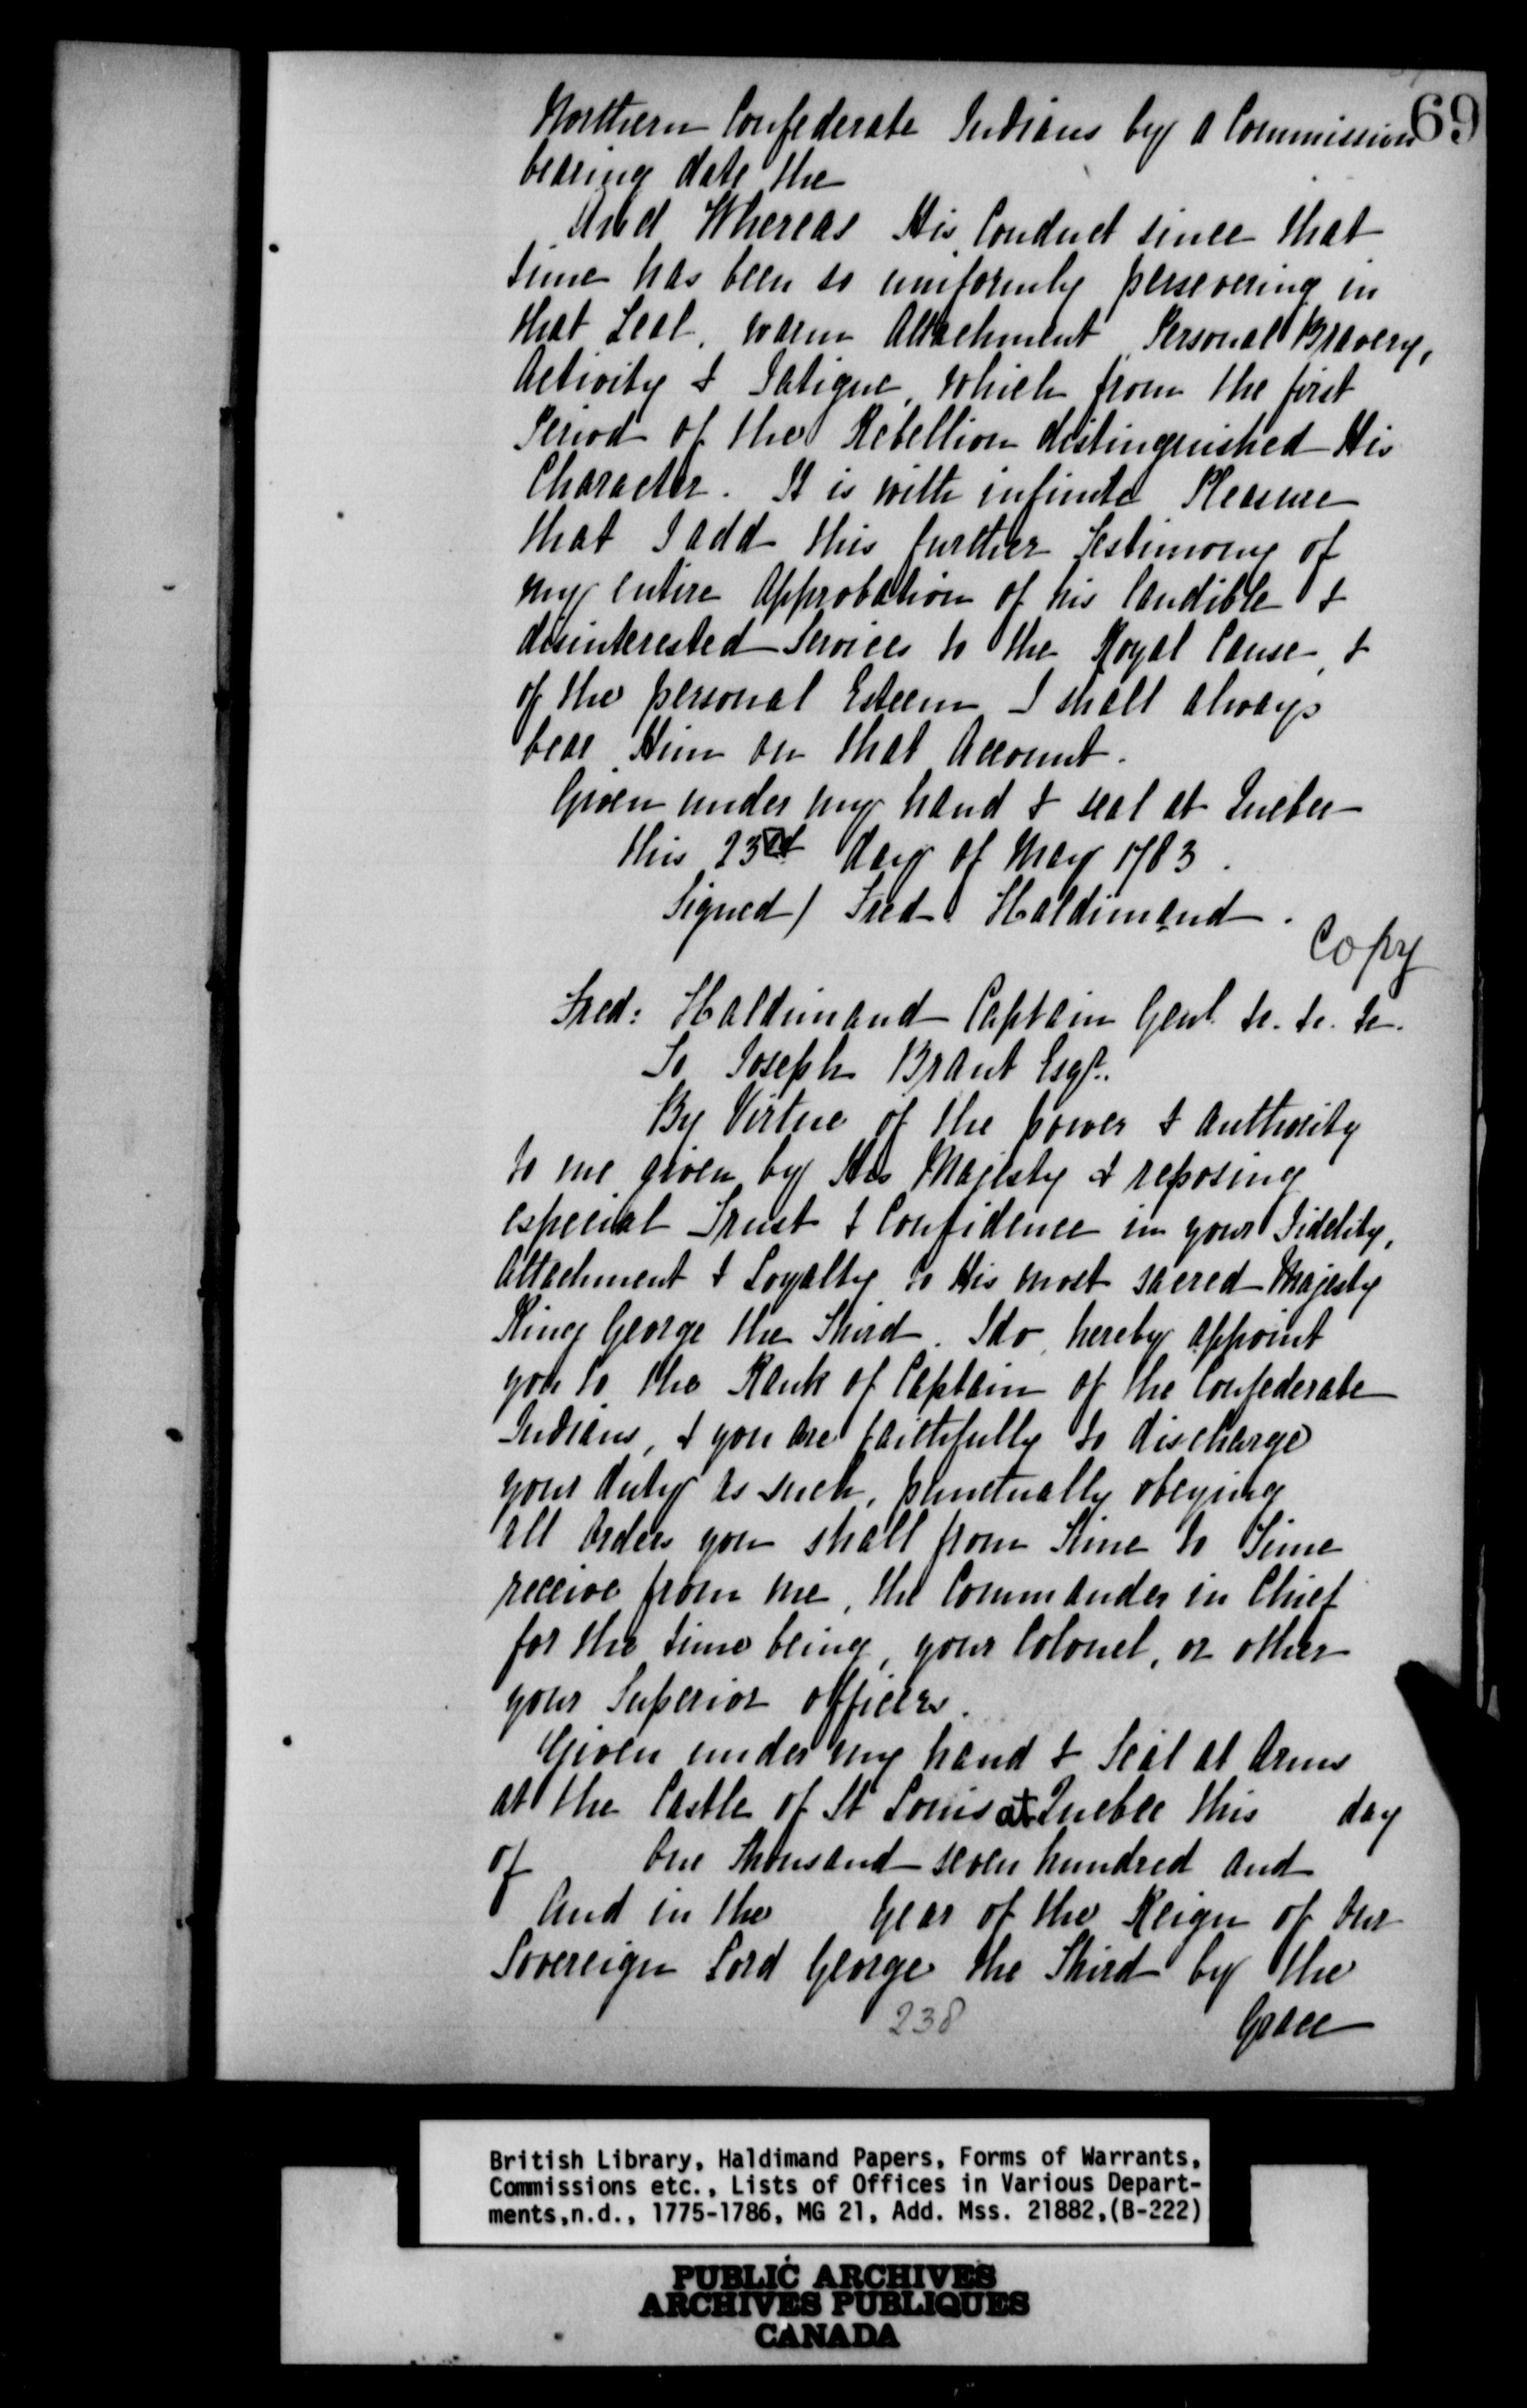 69
Northern Confederate Indians by a Commission
bearing date the
And Whereas His Conduct since that
time has been so uniformly persevering in
that Zeal, warm Attachment, Personal Bravery,
Activity & Fatigue, which from the first
Period of the Rebellion distinguished His
Character. It is with infinite Pleasure
that I add this further Testimony of
my entire Approbation of his laudible &
disinterested Services to the Royal Cause, &
of the personal Esteem I shall always
bear Him on that Account.
Given under my hand & seal at Quebec
this 23rd day of May 1783.
Signed / Fred. Haldimand.
Copy
Fred: Haldimand Captain Genl. &c. &c. &c.
To Joseph Brant Esqr.
By Virtue of the power & authority
to me given by His Majesty & reposing
especial Trust & Confidence in your Fidelity,
Attachment & Loyalty to His most sacred Majesty
King George the Third. I do hereby appoint
you to the Rank of Captain of the Confederate
Indians, & you are faithfully to discharge
your duty as such, punctually obeying
all Orders you shall from Time to Time
receive from me, the Commander in Chief
for the time being, your Colonel, or other
your Superior officers.
Given under my hand & Seal at Arms
at the Castle of St Louis at Quebec this day
of One Thousand seven hundred and
And in the Year of the Reign of Our
Sovereign Lord George the Third by the
Grace
238
British Library, Haldimand Papers, Forms of Warrants,
Commissions etc., Lists of Offices in Various Depart-
ments,n.d., 1775-1786, MG 21, Add. Mss. 21882,(B-222)
PUBLIC ARCHIVES
ARCHIVES PUBLIQUES
CANADA